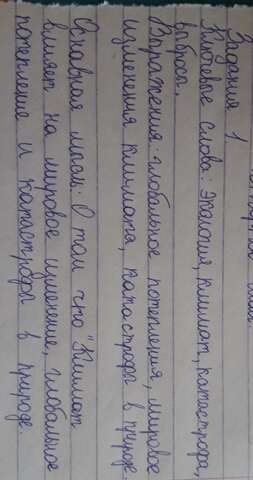 Задания 1
Ключевые слова: Экология, климат, катастрофа,
выбросы,
Выражения: глобальное потепления, мировое
изменения климата, катастрофы в природе.
Основная мысль: О том что "Климат
влияет на мировое изменение, глобальное
потепление и катастрофы в природе.